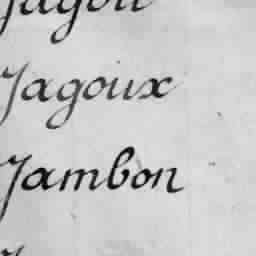 Jagoux
Jambon